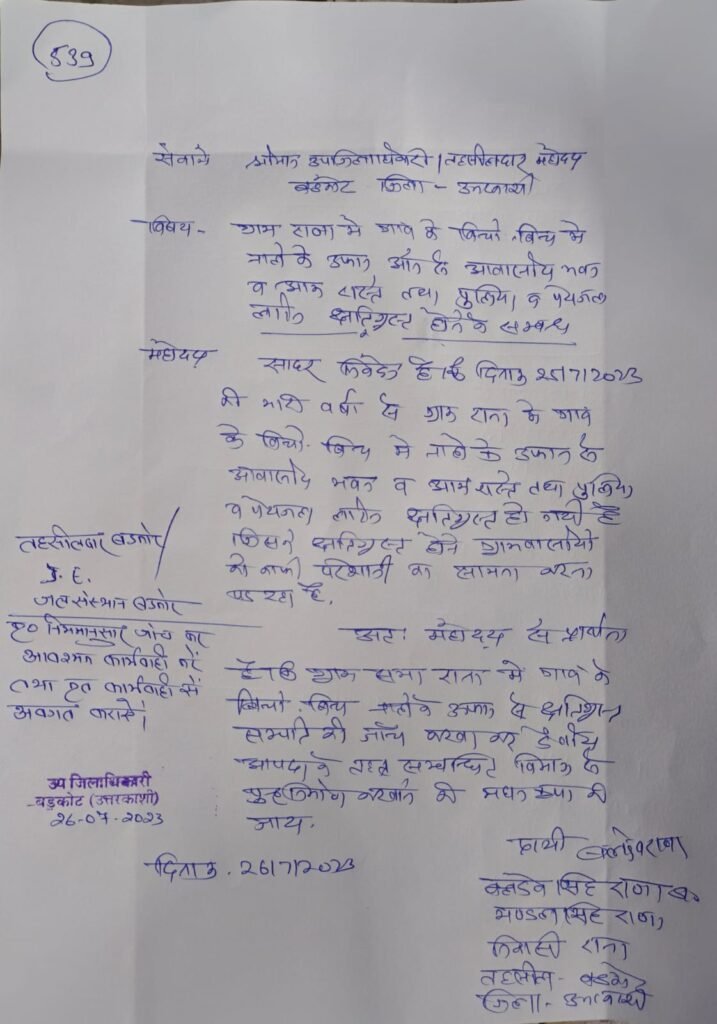 539
सेवामे श्रीमान उपजिलाधिकारी/तहसीलदार महोदय
बडकोट जिला - उत्तरकाशी
विषय - ग्राम राना मे गांव के बिचो-बिच मे
नाले के उफान आने से आवासीय भवन
व आम रास्ते तथा पुलिया व पेयजल
लाईन क्षतिग्रस्त होने के सम्बन्ध
महोदय सादर निवेदन है कि दिनांक 25/7/2023
की भारी वर्षा से ग्राम राना के गांव
के बिचो-बिच मे नाले के उफान से
आवासीय भवन व आम रास्ते तथा पुलिया
व पेयजल लाईन क्षतिग्रस्त हो गयी है
जिसमे क्षतिग्रस्त होने ग्रामवासीयो
को काफी परेशानी का सामना करना
पड रहा है.
अतः महोदय से प्रार्थना
है कि ग्राम सभा राना मे गांव के
बिचो-बिच नाले के उफान से क्षतिग्रस्त
सम्पति की जाँच करवा कर दैवीय
आपदा के तहत सम्बन्धित विभाग से
पुनः निर्माण करवाने की कृपा की
जाय.
तहसीलदार बडकोट/
J. E.
जल संस्थान बडकोट
कृ० नियमानुसार जांच कर
आवश्यक कार्यवाही करें
तथा कृत कार्यवाही से
अवगत करायें।
उप जिलाधिकारी
बड़कोट (उत्तरकाशी)
26-07-2023
दिनांक. 26/7/2023
प्रार्थी बलदेव राणा
बलदेव सिंह राणा
भण्डन सिंह राणा
निवासी राना
तहसील - बडकोट
जिला - उत्तरकाशी